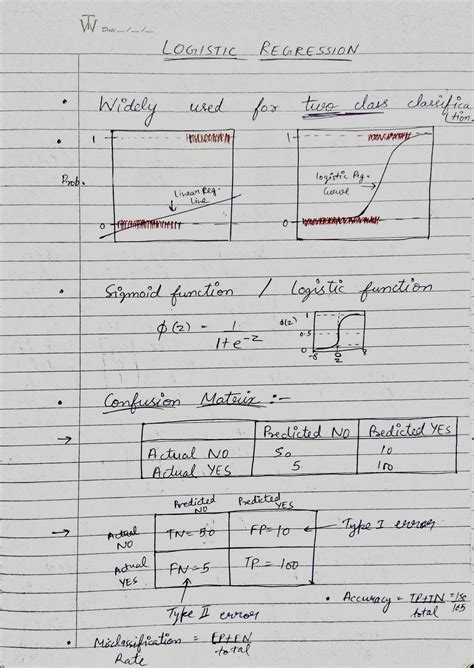 TW Date __/__/__
LOGISTIC REGRESSION
• Widely used for two class classifica
tion.
1
Prob.
Linear Reg.
Line
0
1
logistic Reg.
Curve
0
• Sigmoid function / Logistic function
φ(z) = 1
1+e^-z
φ(z)
1
0.5
0
-8 0 8
z
• Confusion Matrix :-
→ Predicted NO Predicted YES
Actual NO 50 10
Actual YES 5 100
Predicted NO Predicted YES
→ Actual NO TN = 50 FP = 10 ← Type I error
Actual YES FN = 5 TP = 100
Type II error
• Accuracy = TP+TN = 150
total 165
• Misclassification = FP+FN
Rate total